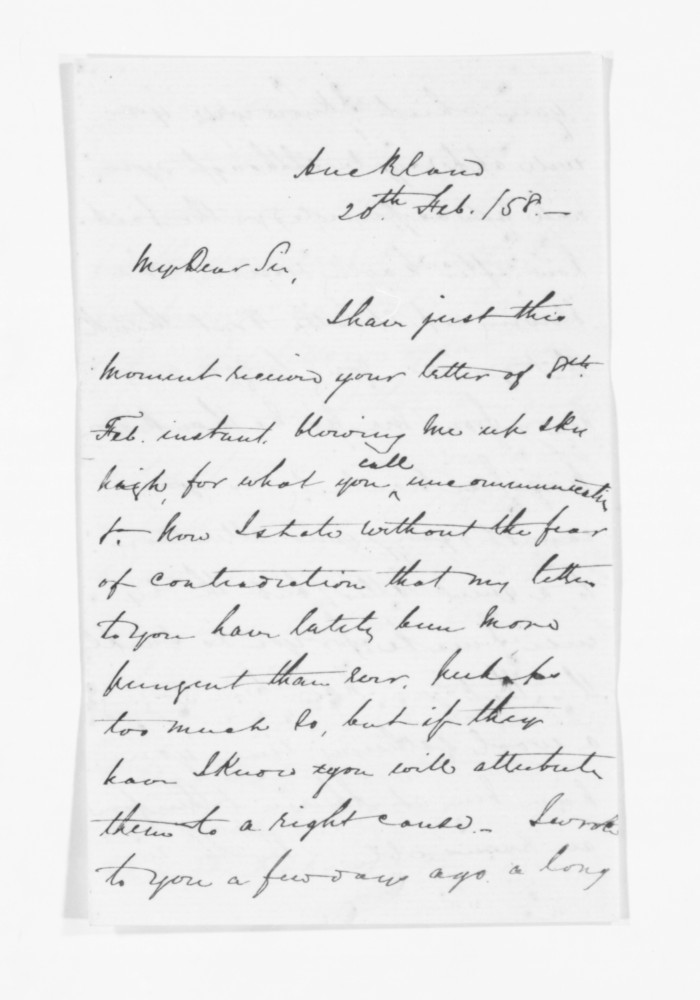 Auckland
20th Feb. /58.—
My Dear Sir,
I have just this
moment received your letter of 8th
Feb. instant. blowing me up sky
high, for what you call uncommunicative
&. Now I state without the fear
of contradiction that my letters
to you have lately been more
pungent than ever. perhaps
too much so, but if they
have I know you will attribute
them to a right cause.— I wrote
to you a few days ago a long